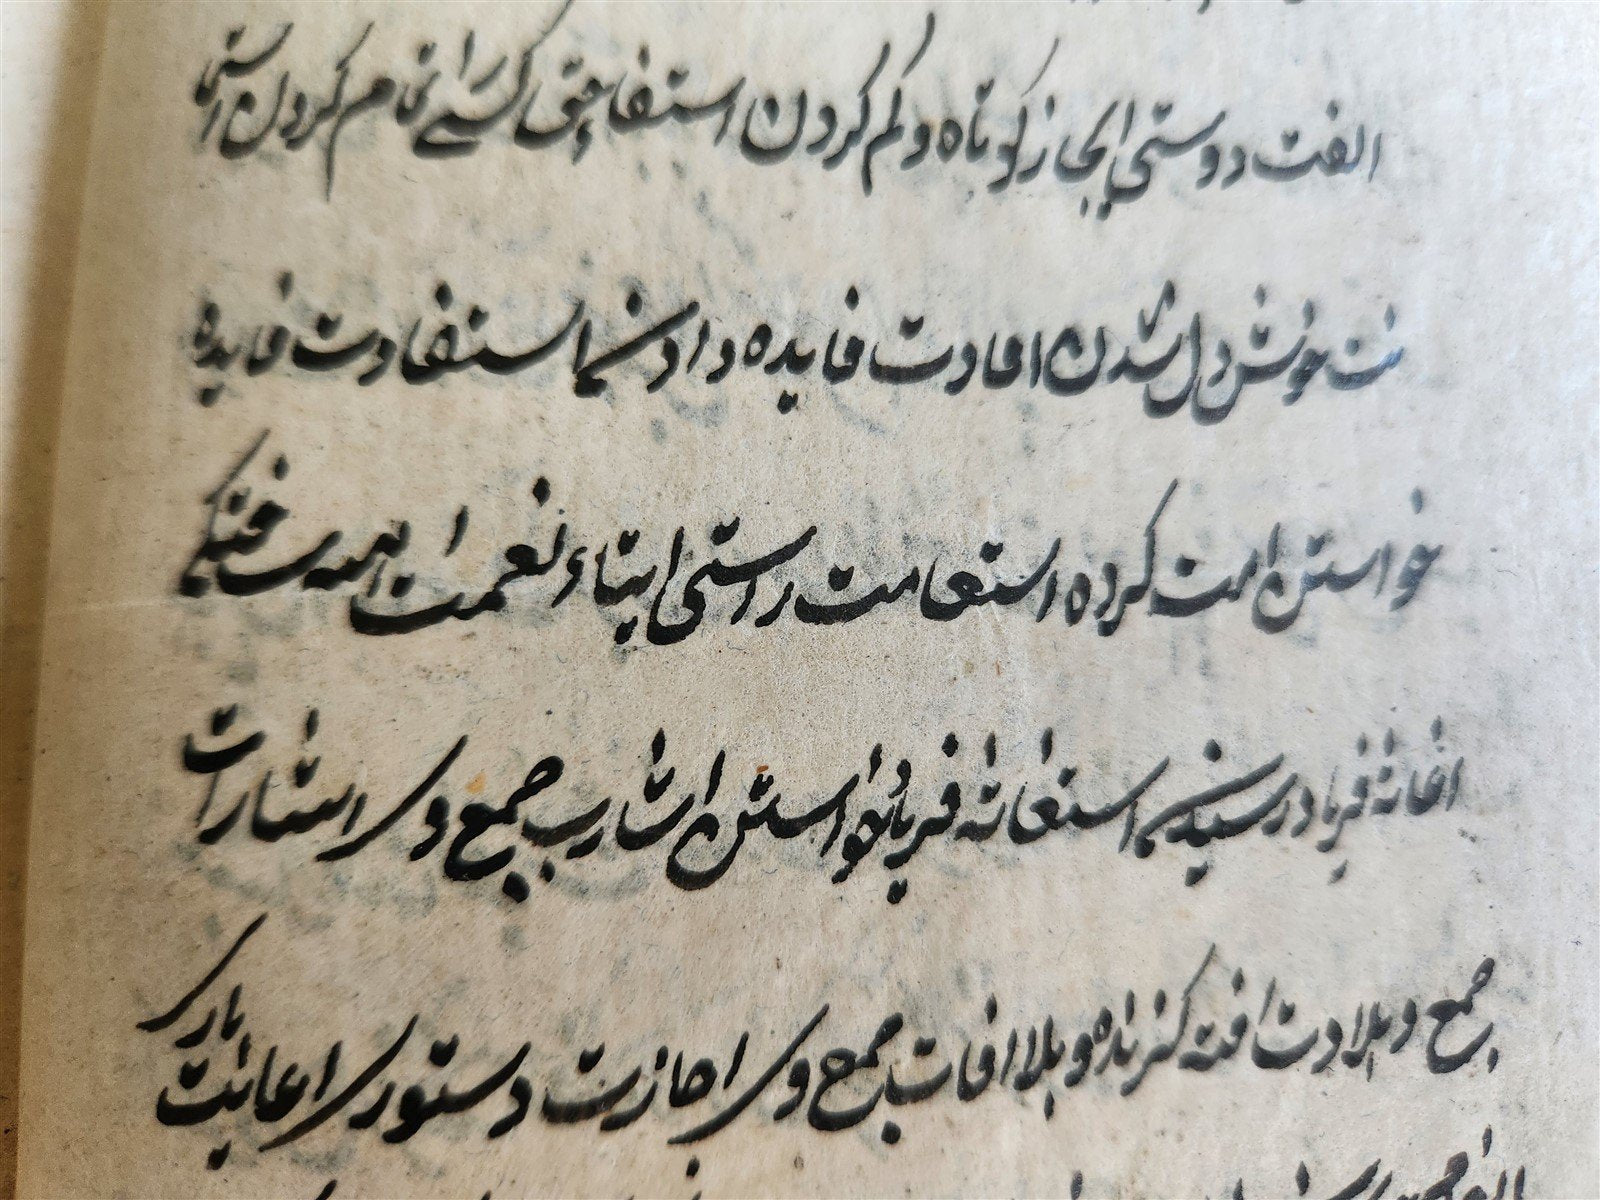 الفت دوستی ایجاز کوتاه و کم کردن استیفا حق کسی را تمام کردن استیما
نت خوش دل شدن افادت فایده دادن استفادت فایده
خواستن امت کرده استقامت راستی ایتاء نعمت
اغاثه فریاد رسیدن استغاثه فریاد خواستن اشارب جمع وی اشارات
جمع و بلادت افته کزنده و بلا افات جمع وی اجازت دستوری اعانت یاری